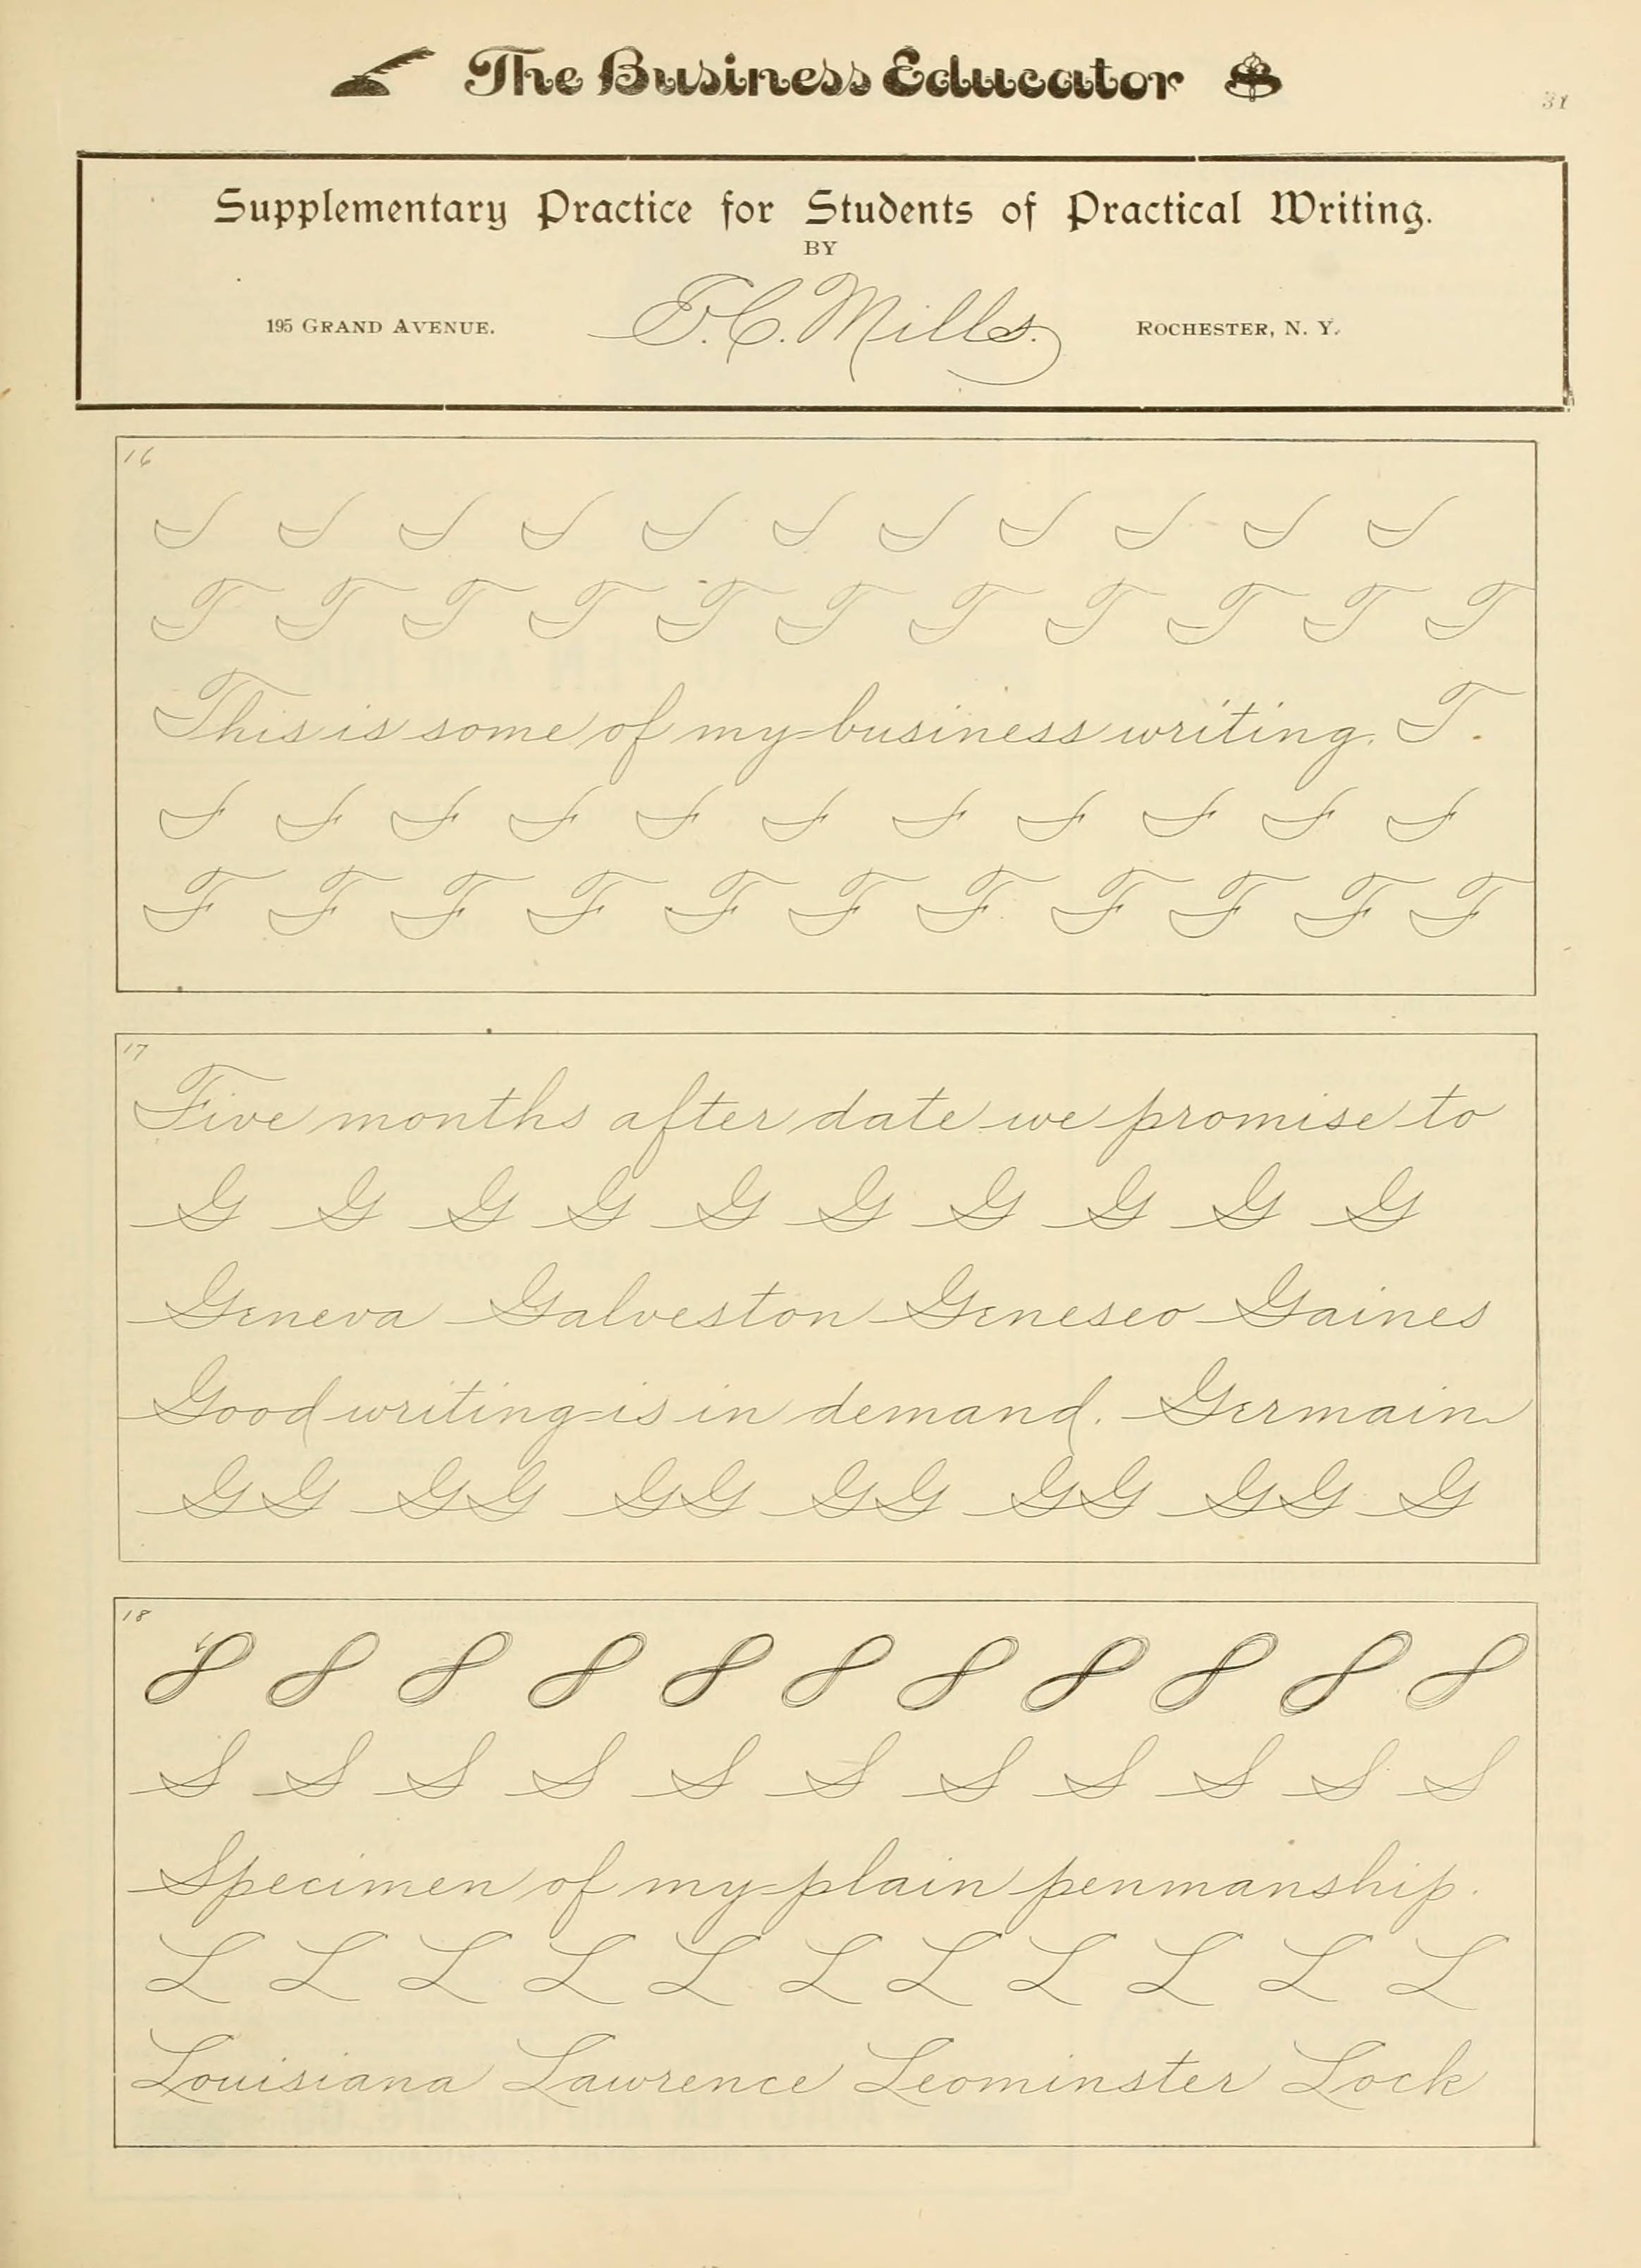 The Business Educator
31
Supplementary Practice for Students of Practical Writing.
BY
195 GRAND AVENUE. E. C. Mills. ROCHESTER, N. Y.
16
T T T T T T T T T T T
This is some of my business writing. T.
F F F F F F F F F F F
17
Five months after date we promise to
G G G G G G G G G G
Geneva Galveston Geneseo Gaines
Good writing is in demand. Germain
G G G G G G G G G G G G G
18
8 8 8 8 8 8 8 8 8 8 8
S S S S S S S S S S S
Specimen of my plain penmanship.
L L L L L L L L L L L
Louisiana Lawrence Leominster Lock